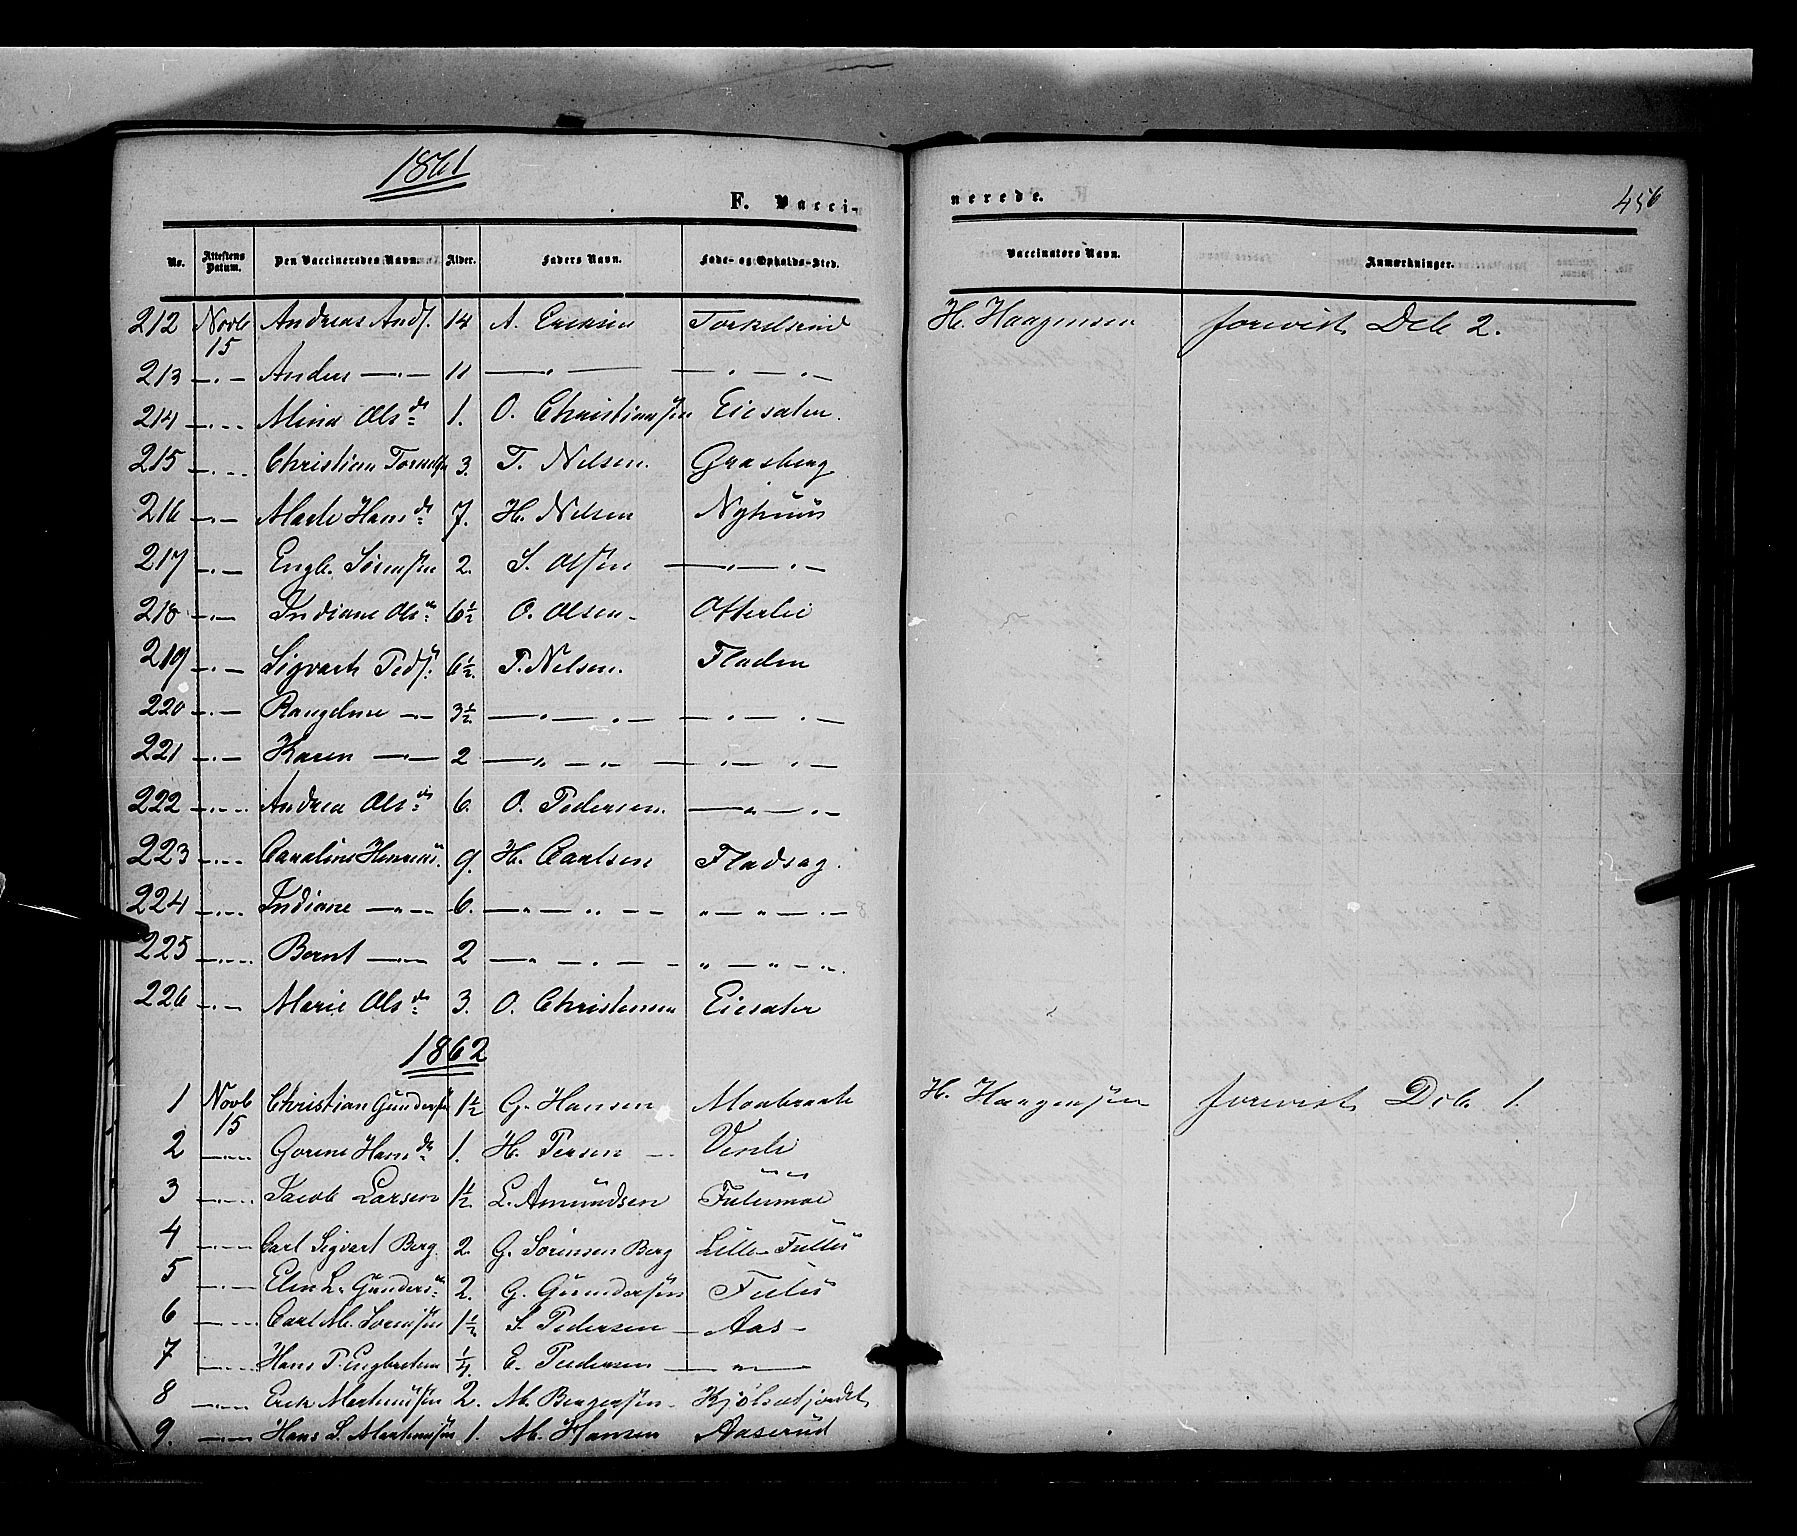 1861
F. Vacci-
nerede.
456
No. Attestens Datum. Den Vaccineredes Navn. Alder. Faders Navn. Føde- og Opholds-Sted. Vaccinatørs Navn. Anmærkninger.
212 Novb 15 Andreas Ands. 14 A. Eriksen Torkelsrud H. Haagensen forevist Deb 2.
213 —„— Anders —„— 11 —„— —„—
214 —„— Mina Olsdr 1. O. Christiansen Eiesaten.
215 —„— Christian 3. T. Nelsen. Grasberg
216 —„— Marte Hansdr 7. H. Nelsen Nyhuus
217 —„— Engb. Sørensen 2. S. Olsen —„—
218 —„— Indiane Olsdr 6½ O. Olsen Otterlei
219 —„— Sigvart Peds. 6½. P. Nelsen. Fladen
220 —„— Rangdine —„— 3½. —„— —„—
221 —„— Karen —„— 2 —„— —„—
222 —„— Andrea Olsdr 6. O. Pedersen. —„—
223 —„— Caroline 9. H. Carlsen Fladsag.
224 —„— Indiane —„— 6. —„— —„—
225 —„— Bernt —„— 2 —„— —„—
226 —„— Marie Olsdr 3. O. Christensen Eiesater
1862
1 Novb 15 Christian Gundersen 1½ G. Hansen Moabraate H. Haagensen forevist Deb. 1.
2 —„— Gorine Hansdr 1. H. Persen
3 —„— Jacob Larsen 1½. L. Amundsen Fulumoe
4 —„— Carl Sigvart Berg. 2. G. Sørensen Berg Lille-Fulu
5 —„— Elen L. Gundersdr 2. G. Gundersen Fulu
6 —„— Carl M. Sørensen 1½ S. Pedersen — Aas —
7 —„— Hans P. Engbretsen ¼. E. Pedersen —„—
8 —„— Erik Martinusen 2. M. Birgersen. Kjølsetjordet
9. —„— Hans S. Martinusen 1. M. Hansen Aaserud